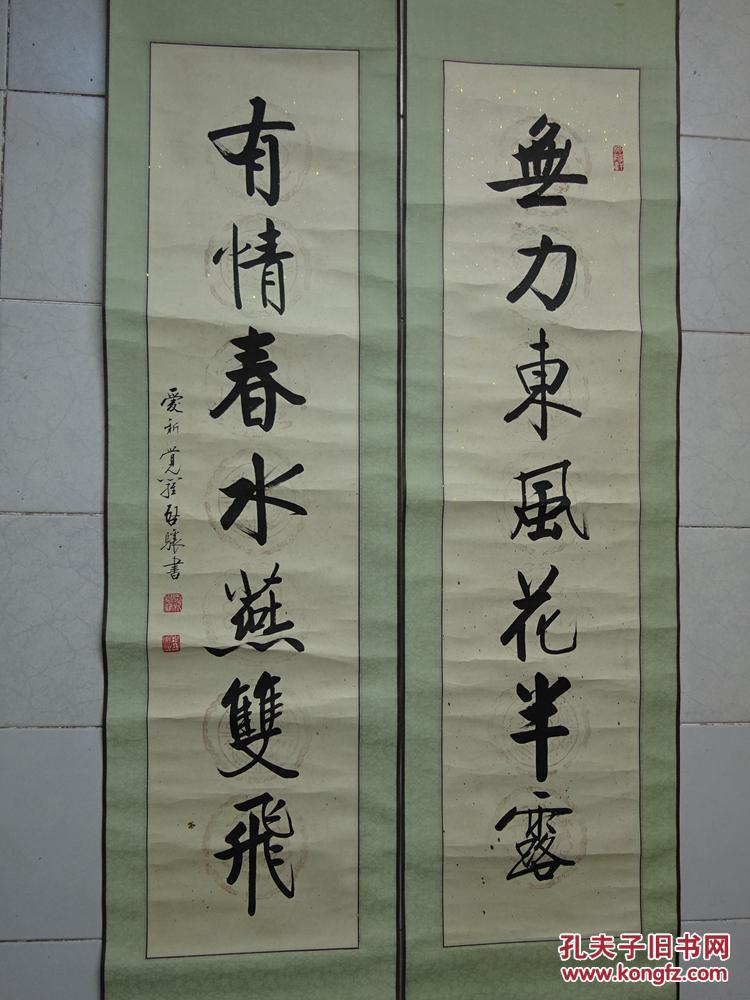 無力東風花半露
有情春水燕雙飛
愛新覺羅啟驤書
孔夫子旧书网
www.kongfz.com